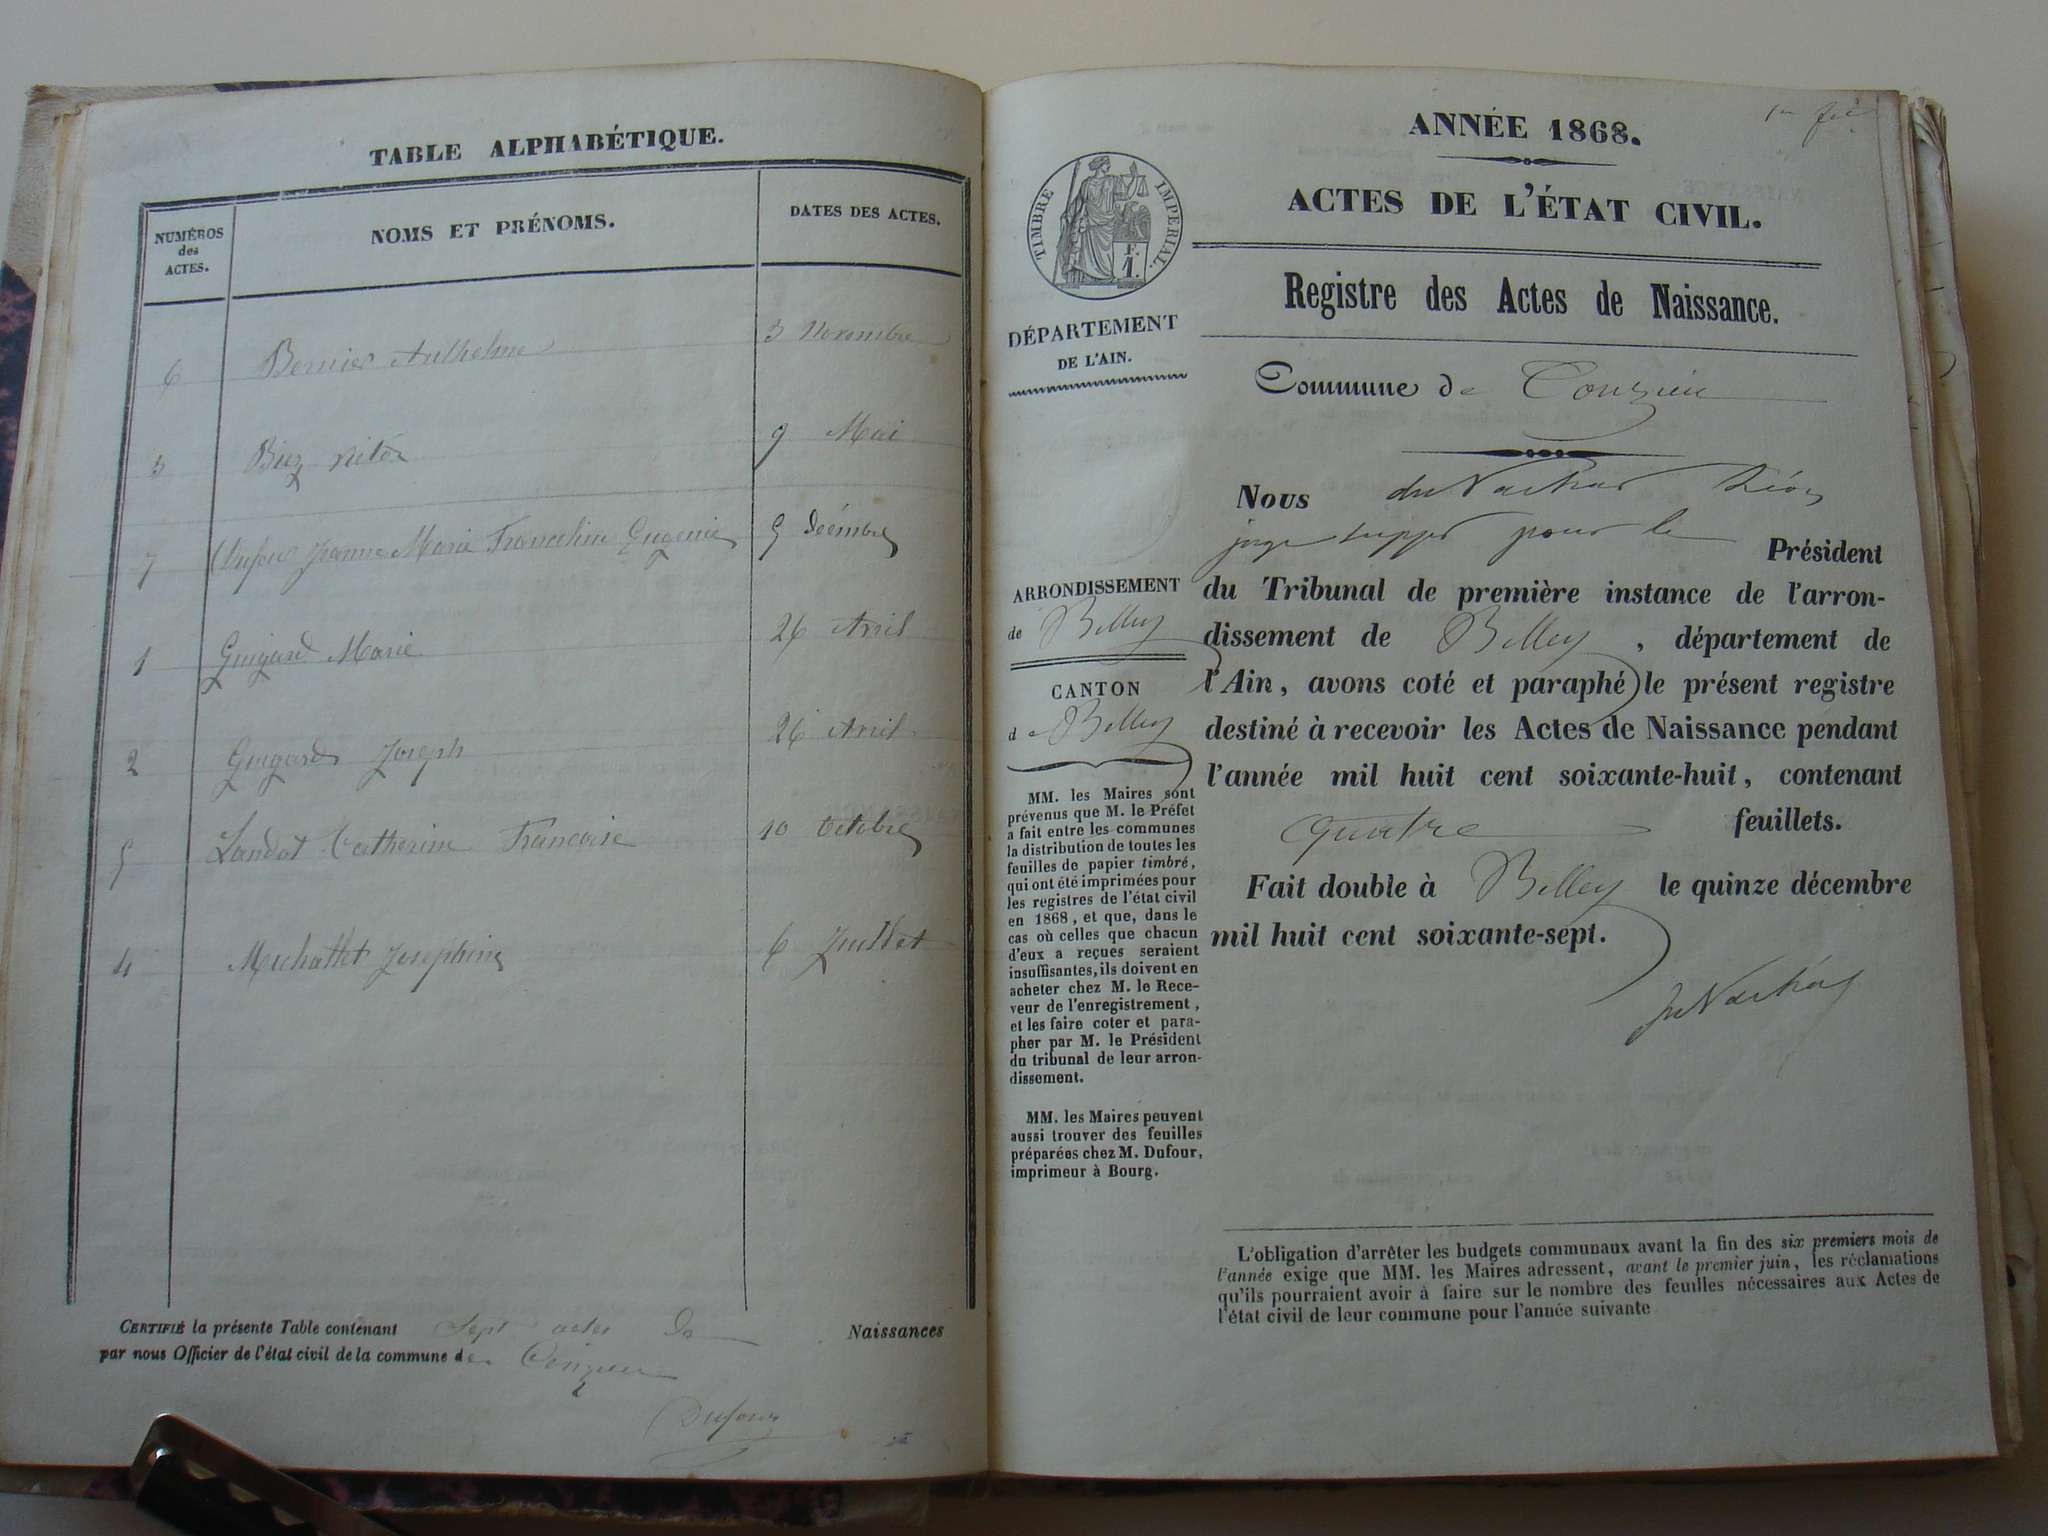 TABLE ALPHABÉTIQUE.
NUMÉROS des ACTES. NOMS ET PRÉNOMS. DATES DES ACTES.
6 Bernier Anthelme 3 Novembre
3 Biez 9 Mai
7 Dufour Jeanne Marie Franceline Eugenie 9 Décembre
1 Guigard Marie 26 Avril
2 Guigard Joseph 26 Avril
5 Landot Catherine Francoise 10 Octobre
4 Michallet Josephine 6 Juillet
CERTIFIÉ la présente Table contenant Sept actes de Naissances
par nous Officier de l'état civil de la commune de
Dufour
ANNÉE 1868.
ACTES DE L'ÉTAT CIVIL.
TIMBRE IMPÉRIAL.
F.
1.
Registre des Actes de Naissance.
DÉPARTEMENT
DE L'AIN.
Commune de Conzieu
Nous
juge supp. pour le Président
ARRONDISSEMENT
de Belley
CANTON
de Belley
du Tribunal de première instance de l'arron-
dissement de Belley, département de
l'Ain, avons coté et paraphé le présent registre
destiné à recevoir les Actes de Naissance pendant
l'année mil huit cent soixante-huit, contenant
quatre feuillets.
Fait double à Belley le quinze décembre
mil huit cent soixante-sept.
MM. les Maires sont
prévenus que M. le Préfet
a fait entre les communes
la distribution de toutes les
feuilles de papier timbré,
qui ont été imprimées pour
les registres de l'état civil
en 1868, et que, dans le
cas où celles que chacun
d'eux a reçues seraient
insuffisantes, ils doivent en
acheter chez M. le Rece-
veur de l'enregistrement,
et les faire coter et para-
pher par M. le Président
du tribunal de leur arron-
dissement.
MM. les Maires peuvent
aussi trouver des feuilles
préparées chez M. Dufour,
imprimeur à Bourg.
L'obligation d'arrêter les budgets communaux avant la fin des six premiers mois de
l'année exige que MM. les Maires adressent, avant le premier juin, les réclamations
qu'ils pourraient avoir à faire sur le nombre des feuilles nécessaires aux Actes de
l'état civil de leur commune pour l'année suivante